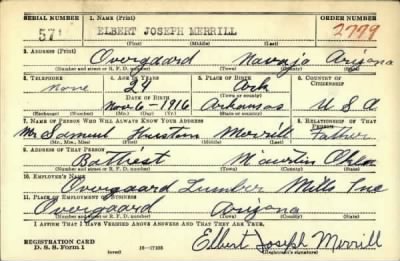 SERIAL NUMBER 1. NAME (Print) ORDER NUMBER
57 ELBERT JOSEPH MERRILL 2799
(First) (Middle) (Last)
2. ADDRESS (Print)
Overgaard Navajo Arizona
(Number and street or R. F. D. number) (Town) (County) (State)
3. TELEPHONE 4. AGE IN YEARS 5. PLACE OF BIRTH 6. COUNTRY OF CITIZENSHIP
none 24 Ark
DATE OF BIRTH (Town or county)
Nov 6-1916 Arkansas U S A
(Exchange) (No.) (Mo.) (Day) (Yr.) (State or country)
7. NAME OF PERSON WHO WILL ALWAYS KNOW YOUR ADDRESS 8. RELATIONSHIP OF THAT PERSON
Mr Samuel Houston Merrill Father
(Mr., Mrs., Miss) (First) (Middle) (Last)
9. ADDRESS OF THAT PERSON
Battiest Okla
(Number and street or R. F. D. number) (Town) (County) (State)
10. EMPLOYER'S NAME
Overgaard Lumber Mills Inc
11. PLACE OF EMPLOYMENT OR BUSINESS
Overgaard Arizona
(Number and street or R. F. D. number) (Town) (County) (State)
I AFFIRM THAT I HAVE VERIFIED ABOVE ANSWERS AND THAT THEY ARE TRUE.
REGISTRATION CARD
D. S. S. Form 1 (over) 16-17105 Elbert Joseph Merrill
(Registrant's signature)